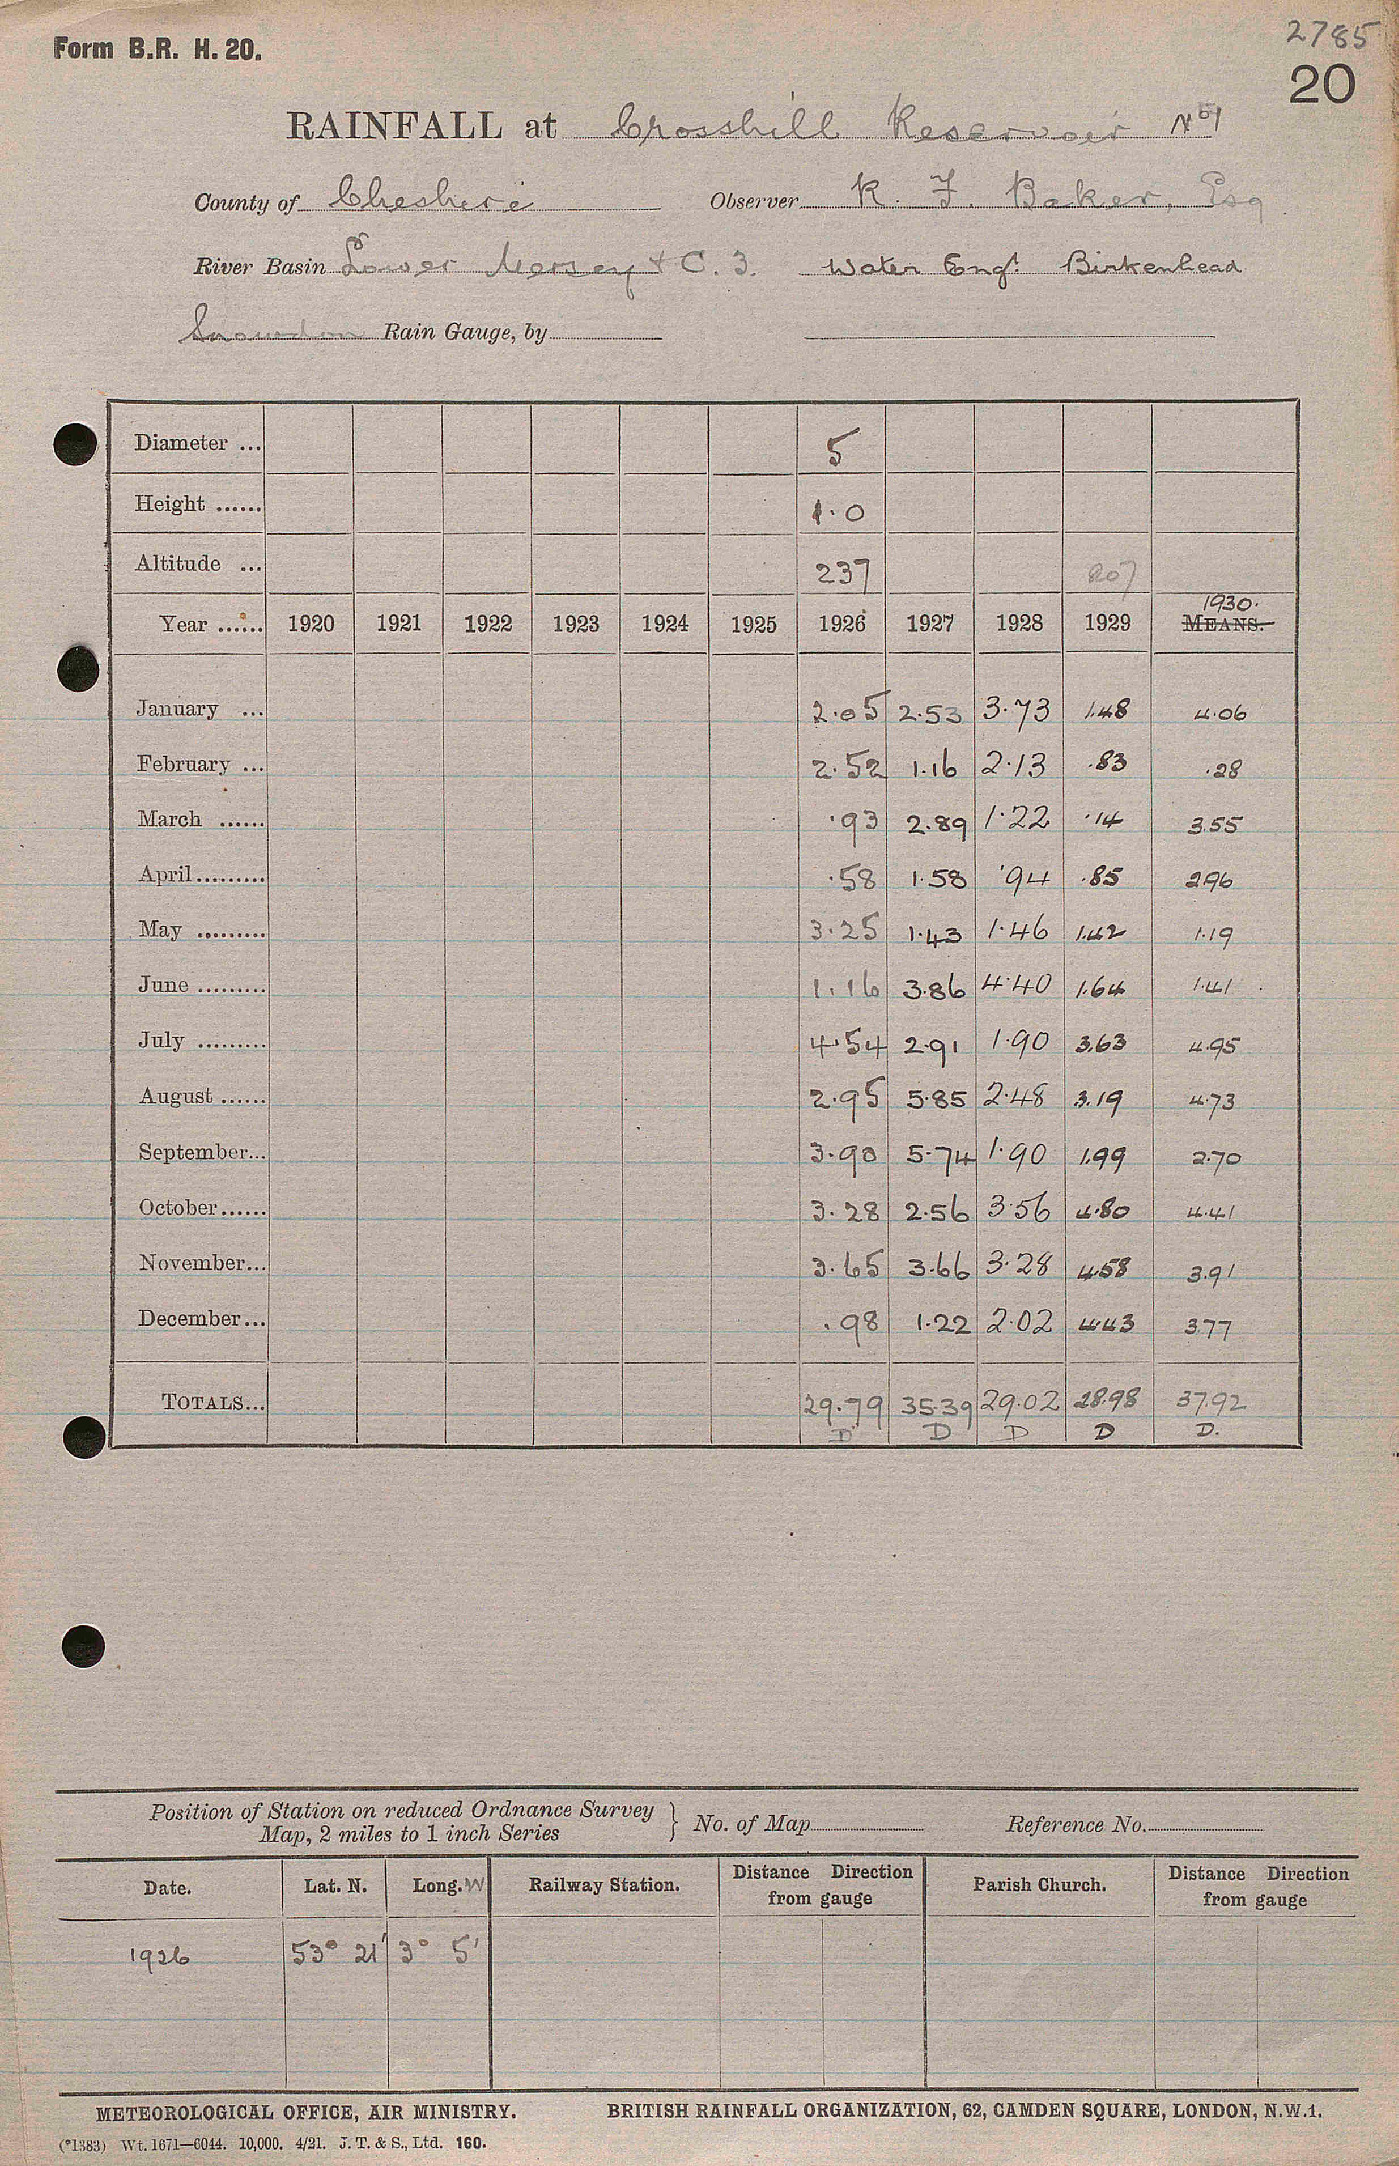 2785
Form B.R. H. 20.
20
RAINFALL at Crosshill Reservoir No 1
County of Cheshire Observer R. F. Baker, Esq
River Basin Lower Mersey & C. 3. Water Engr. Birkenhead
Snowdon Rain Gauge, by
Diameter ... 5
Height ...... 1.0
Altitude ... 237 207
1930.
Year ...... 1920 1921 1922 1923 1924 1925 1926 1927 1928 1929 MEANS.
January ... 2.05 2.53 3.73 1.48 4.06
February ... 2.52 1.16 2.13 .83 .28
March ...... .93 2.89 1.22 .14 3.55
April......... .58 1.58 .94 .85 2.96
May ......... 3.25 1.43 1.46 1.42 1.19
June ......... 1.16 3.86 4.40 1.64 1.41
July ......... 4.54 2.91 1.90 3.63 4.95
August ...... 2.95 5.85 2.48 3.19 4.73
September... 3.90 5.74 1.90 1.99 2.70
October...... 3.28 2.56 3.56 4.80 4.41
November... 3.65 3.66 3.28 4.58 3.91
December... .98 1.22 2.02 4.43 3.77
TOTALS... 29.79 35.39 29.02 28.98 37.92
D D D D D.
Position of Station on reduced Ordnance Survey
Map, 2 miles to 1 inch Series } No. of Map Reference No.
Date. Lat. N. Long. W Railway Station. Distance Direction from gauge Parish Church. Distance Direction from gauge
1926 53° 21' 3° 5'
METEOROLOGICAL OFFICE, AIR MINISTRY. BRITISH RAINFALL ORGANIZATION, 62, CAMDEN SQUARE, LONDON, N.W.1.
(*1383) Wt. 1671—6044. 10,000. 4/21. J. T. & S., Ltd. 160.